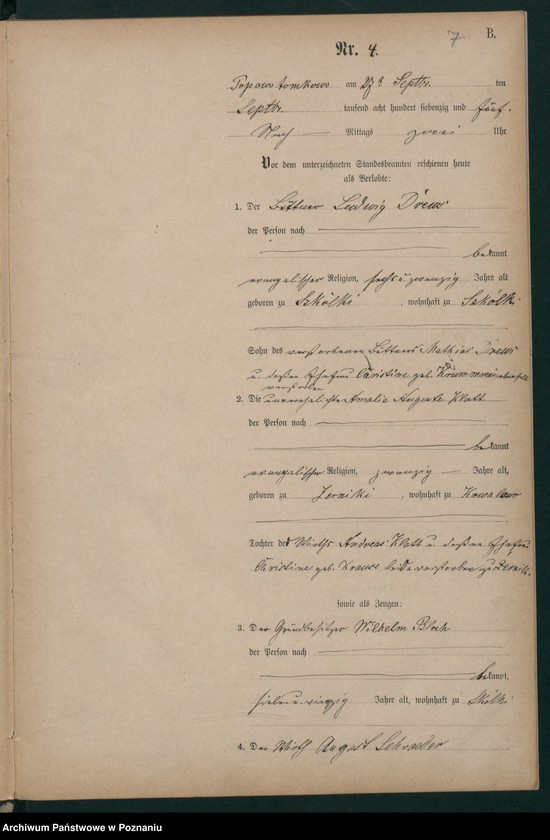 7 B.
Nr. 4.
Popowo tomkowo am 27ten Septbr. ten
Septbr. tausend acht hundert siebenzig und fünf.
Nach Mittags zwei Uhr
Vor dem unterzeichneten Standesbeamten erschienen heute
als Verlobte:
1. Der Büttner Ludwig Drews
der Person nach
bekannt
evangelischer Religion, sechs u zwanzig Jahre alt
geboren zu Szkólki, wohnhaft zu Szkólki
Sohn des verstorbenen Mathias Drews
u. dessen Ehefrau Christine geb. Krummrei ebenfalls
verstorben
2. Die unverehelichte Amalie Auguste Klatt
der Person nach
bekannt
evangelischer Religion, zwanzig Jahre alt,
geboren zu Zerniki, wohnhaft zu
Tochter des Wirths Andreas Klatt u. dessen Ehefrau
Christine geb. Krause beide verstorben zu Zerniki.
sowie als Zeugen:
3. Der Grundbesitzer Wilhelm
der Person nach
bekannt,
sieben u. vierzig Jahre alt, wohnhaft zu Skólki
4. Der Wirth August Schroeder
Archiwum Państwowe w Poznaniu